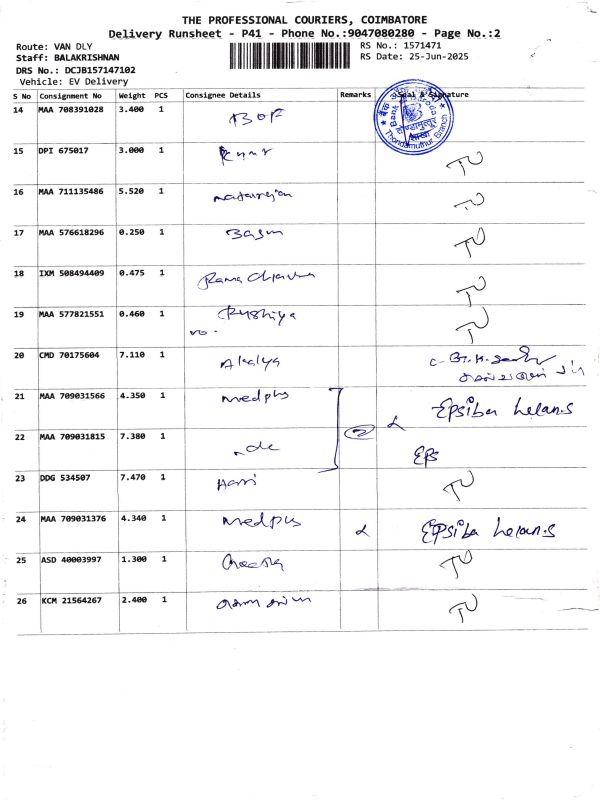 THE PROFESSIONAL COURIERS, COIMBATORE
Delivery Runsheet - P41 - Phone No.:9047080280 - Page No.:2
Route: VAN DLY
RS No.: 1571471
Staff: BALAKRISHNAN
RS Date: 25-Jun-2025
DRS No.: DCJB157147102
Vehicle: EV Delivery
S No Consignment No Weight PCS Consignee Details Remarks Seal & Signature
14 MAA 708391028 3.400 1 BOF
Thondamuthur Branch
15 DPI 675017 3.000 1 TU
16 MAA 711135486 5.520 1 TU
17 MAA 576618296 0.250 1 TU
18 IXM 508494409 0.475 1 Rama TU
19 MAA 577821551 0.460 1 Rushiya TU
20 CMD 70175604 7.110 1
21 MAA 709031566 4.350 1 Medplus Epsiba helan.S
22 MAA 709031815 7.380 1 2 EPS
23 DDG 534507 7.470 1 Hari TU
24 MAA 709031376 4.340 1 Medplus Epsiba helan.S
25 ASD 40003997 1.300 1 TU
26 KCM 21564267 2.400 1 TU